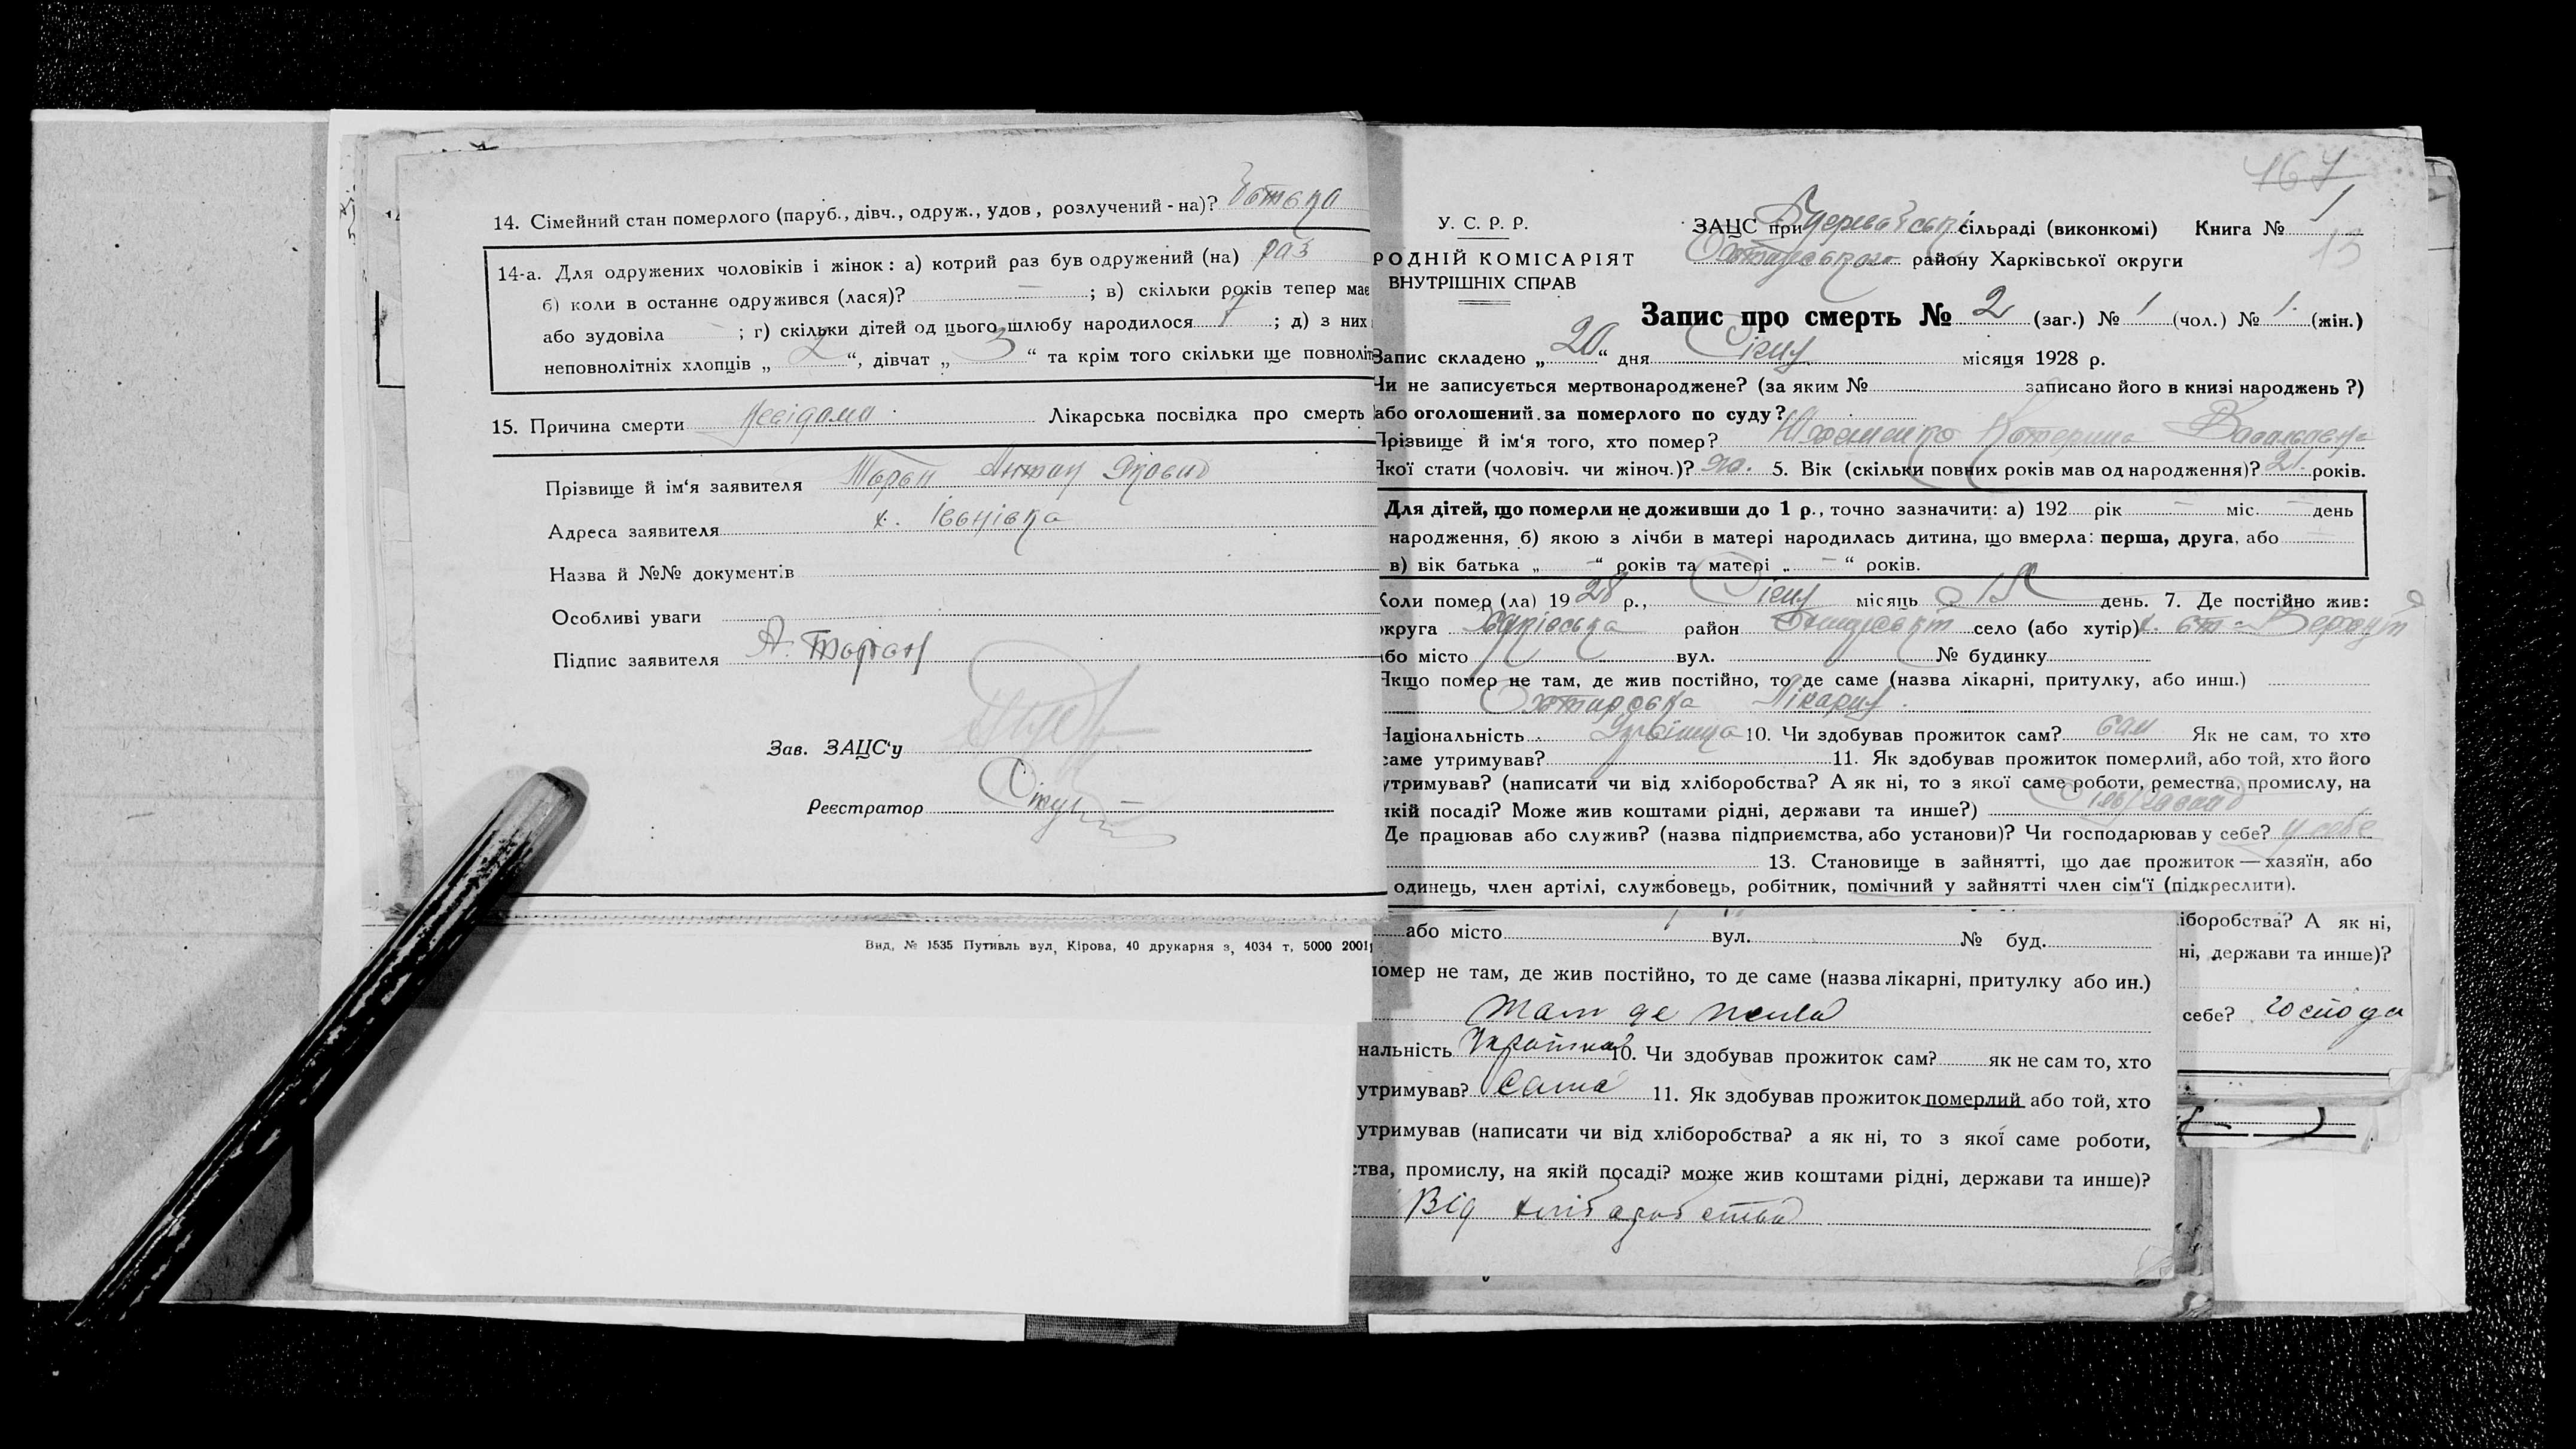 14. Сімейний стан померлого (паруб., дівч., одруж., удов, розлучений - на)?
14-а. Для одружених чоловіків і жінок: а) котрий раз був одружений (на) раз
б) коли в останнє одружився (лася)? — ; в) скільки років тепер має
або зудовіла — ; г) скільки дітей од цього шлюбу народилося 7 ; д) з них
неповнолітніх хлопців „ 2 “, дівчат „ 3 “ та крім того скільки ще повноліт
15. Причина смерти невідома Лікарська посвідка про смерть
Прізвище й ім‘я заявителя Торан Антон Якович
Адреса заявителя х. Іванівка
Назва й №№ документів
Особливі уваги
Підпис заявителя А. Торан
Зав. ЗАЦС‘у
Реєстратор
Вид, № 1535 Путивль вул, Кірова, 40 друкарня з, 4034 т, 5000 2001
167
У. С. Р. Р. ЗАЦС при сільраді (виконкомі) Книга № 1
13
РОДНІЙ КОМІСАРІЯТ Охтирського району Харківської округи
ВНУТРІШНІХ СПРАВ
Запис про смерть № 2 (заг.) № 1 (чол.) № 1. (жін.)
Запис складено „ 20 “ дня Січня місяця 1928 р.
Чи не записується мертвонароджене? (за яким № записано його в книзі народжень ?)
або оголошений. за померлого по суду?
Прізвище й ім‘я того, хто помер? Юхименко Катерина
Якої стати (чоловіч. чи жіноч.)? жо. 5. Вік (скільки повних років мав од народження)? 21. років.
Для дітей, що померли не доживши до 1 р., точно зазначити: а) 192 рік — міс. — день
народження, б) якою з лічби в матері народилась дитина, що вмерла: перша, друга, або —
в) вік батька „ — “ років та матері „ — “ років.
Коли помер (ла) 1928 р., Січня місяць 15 день. 7. Де постійно жив:
округа Харківська район Охтирський село (або хутір)
або місто вул. № будинку
Якщо помер не там, де жив постійно, то де саме (назва лікарні, притулку, або инш.)
Охтирська Лікарня.
Національність Українка 10. Чи здобував прожиток сам? сам Як не сам, то хто
саме утримував? 11. Як здобував прожиток померлий, або той, хто його
утримував? (написати чи від хліборобства? А як ні, то з якої саме роботи, ремества, промислу, на
якій посаді? Може жив коштами рідні, держави та инше?)
Де працював або служив? (назва підприємства, або установи)? Чи господарював у себе? у себе
13. Становище в зайнятті, що дає прожиток — хазяїн, або
одинець, член артілі, службовець, робітник, помічний у зайнятті член сім‘ї (підкреслити).
або місто вул. № буд.
помер не там, де жив постійно, то де саме (назва лікарні, притулку або ин.)
там де жила
нальність Українка 10. Чи здобував прожиток сам? як не сам то, хто
утримував? Сама 11. Як здобував прожиток померлий або той, хто
утримував (написати чи від хліборобства? а як ні, то з якої саме роботи,
ства, промислу, на якій посаді? може жив коштами рідні, держави та инше)?
Від хліборобства
іборобства? А як ні,
ні, держави та инше)?
себе? господа